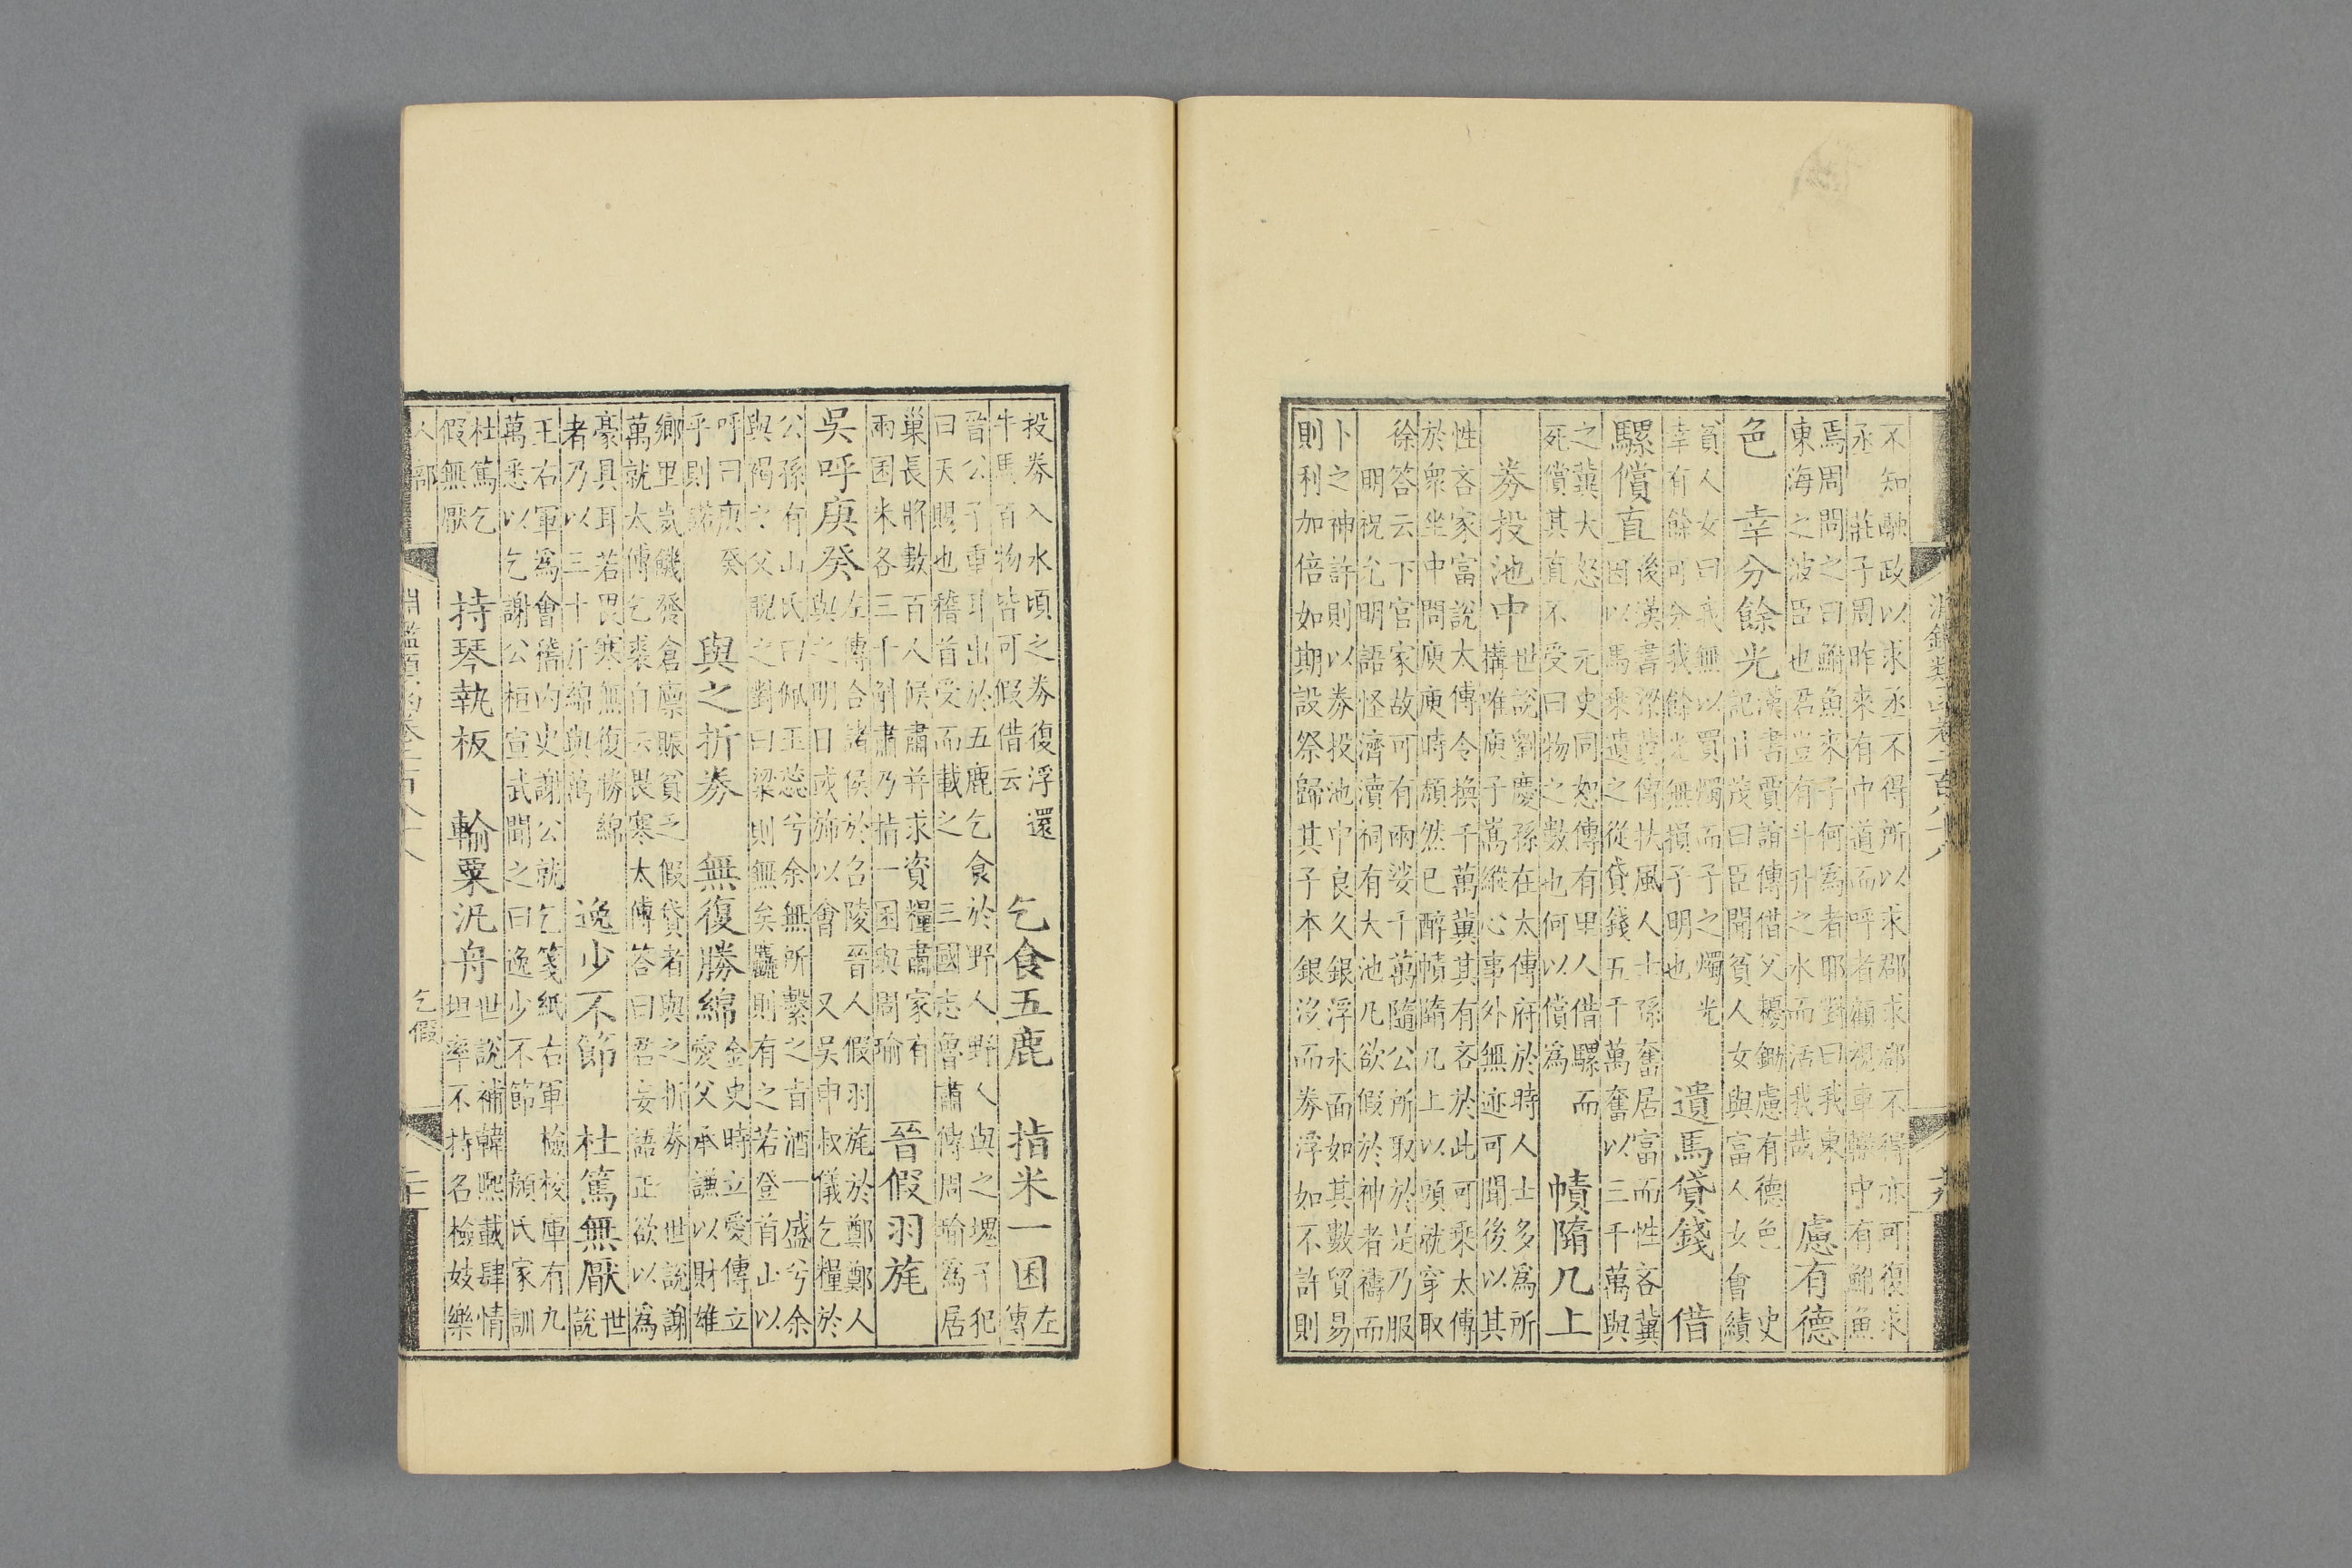 淵鑑類函卷二百八十八
十九
不知融政以求丞不得所以求郡求郡不得亦可復求
丞 莊子周昨來有中道而呼者顧視車轍中有鮒魚
焉周問之曰鮒魚來子何爲者耶對曰我東
東海之波臣也君豈有斗升之水而活我哉
慮有德
色 幸分餘光
漢書賈誼傳借父耰鋤慮有德色 史
記甘茂曰臣聞貧人女與富人女會績
貧人女曰我無以買燭而子之燭光
幸有餘可分我餘光無損子明也
遺馬貸錢 借
騾償直
後漢書梁冀傳扶風人士孫奮居富而性吝冀
因以馬乘遺之從貸錢五千萬奮以三千萬與
之冀大怒 元史同恕傳有里人借騾而
死償其直不受曰物之數也何以償爲
幘隋几上
券投池中
世說劉慶孫在太傅府於時人士多爲所
搆唯庾子嵩縱心事外無迹可聞後以其
性吝家富說太傅令換千萬冀其有吝於此可乘太傅
於衆坐中問庾庾時頹然已醉幘隋几上以頭就穿取
徐答云下官家故可有兩娑千萬隨公所取於是乃服
明祝允明語怪濟瀆祠有大池凡欲假於神者禱而
卜之神許則以券投池中良久銀浮水面如其數貿易
則利加倍如期設祭歸其子本銀沒而券浮如不許則
投券入水頃之券復浮還
牛馬百物皆可假借云
乞食五鹿 指米一囷
左
傳
晉公子重耳出於五鹿乞食於野人野人與之塊子犯
曰天賜也稽首受而載之 三國志魯肅傳周瑜爲居
巢長將數百人候肅并求資糧肅家有
兩囷米各三千斛肅乃指一囷與周瑜
晉假羽旄
吳呼庚癸
左傳合諸侯於召陵晉人假羽旄於鄭鄭人
與之明日或旆以會 又吳申叔儀乞糧於
公孫有山氏曰佩玉蕊兮余無所繫之旨酒一盛兮余
與褐之父睨之對曰梁則無矣麤則有之若登首山以
呼曰庚癸
乎則諾
與之折券 無復勝綿
金史時立愛傳立
愛父承謙以財雄
鄉里歲饑發倉廩賑貧乏假貸者與之折券 世說謝
萬就太傅乞裘自云畏寒太傅答曰君妄語正欲以爲
豪具耳若畏寒無復勝綿
者乃以三十斤綿與萬
逸少不節 杜篤無厭
世
說
王右軍爲會稽內史謝公就乞箋紙右軍檢校庫有九
萬悉以乞謝公桓宣武聞之曰逸少不節 顏氏家訓
杜篤乞
假無厭
持琴執板 輸粟汎舟
世說補韓熙載肆情
坦率不持名檢妓樂
人部
淵鑑類函卷二百八十八
乞假
二十